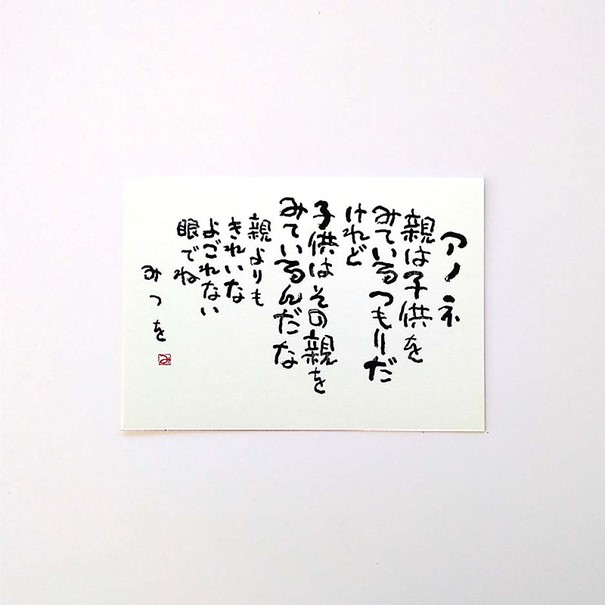 アノネ
親は子供を
みているつもりだ
けれど
子供はその親を
みているんだな
親よりも
きれいな
よごれない
眼でね
みつを
み